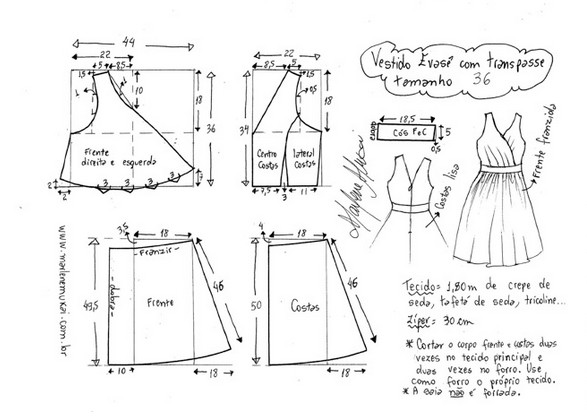 Vestido Evasê com transpasse
tamanho 36
44
22
5
8,5
1,5
10
18
36
Frente
direita e esquerda
2
2
3
3
3
3
7
22
8,5
5
1,5
0,5
18
34
Centro
Costas
lateral
Costas
7,5
3
11
18,5
Cós F e C
5
0,5
Costas lisa
Frente franzida
www.marlenemukai.com.br
3,5
18
-Franzir-
-dobra-
Frente
46
49,5
10
18
4
18
50
Costas
46
18
Tecido= 1,80m de crepe de
seda, tafetá de seda, tricoline...
Zíper= 30cm
* Cortar o corpo frente e costas duas
vezes no tecido principal e
duas vezes no forro. Use
como forro o próprio tecido.
* A saia não é forrada.